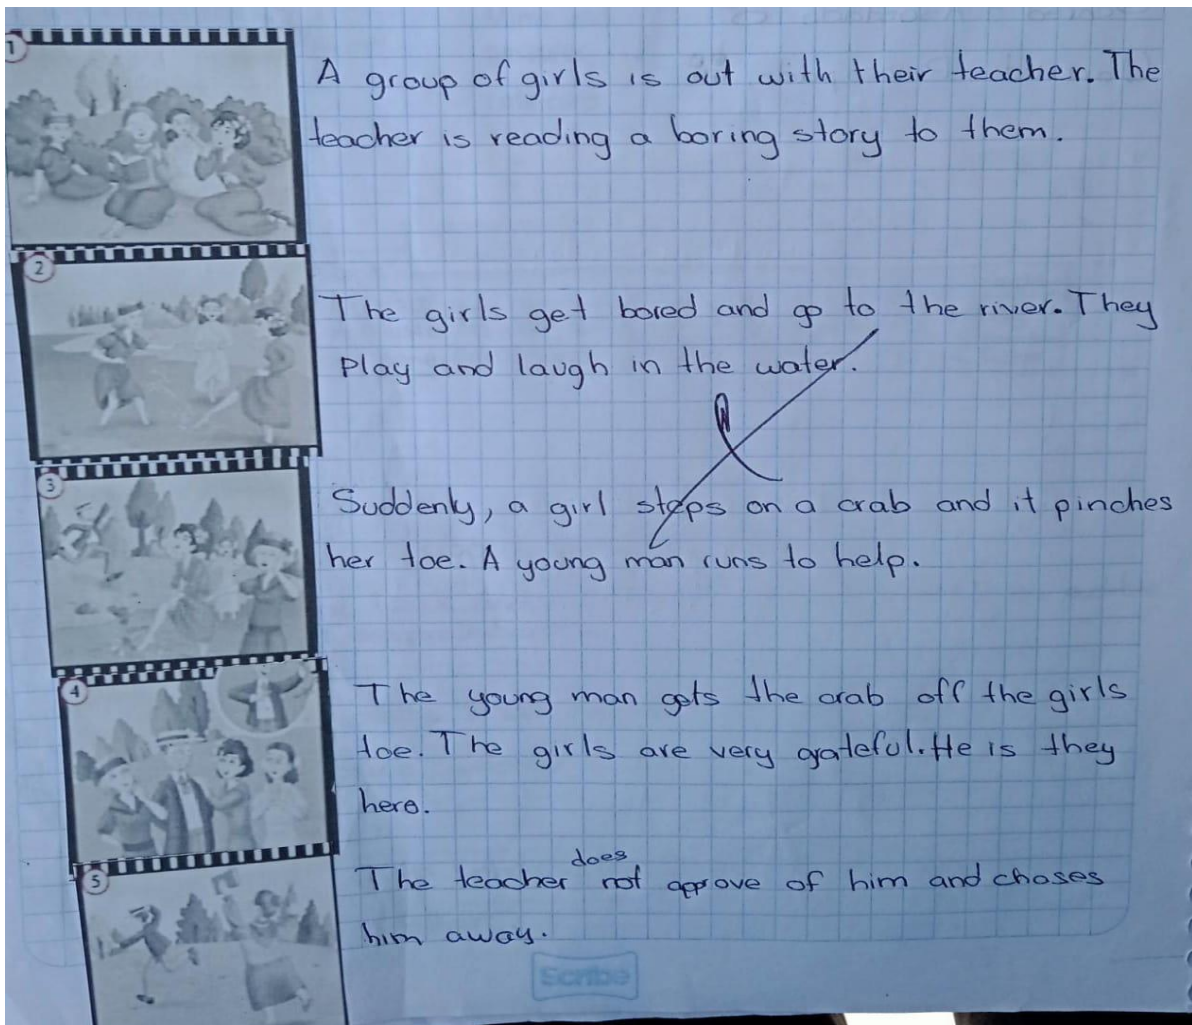 1
A group of girls is out with their teacher. The
teacher is reading a boring story to them.
2
The girls get bored and go to the river. They
Play and laugh in the water.
3
Suddenly, a girl steps on a crab and it pinches
her toe. A young man runs to help.
4
The young man gets the crab off the girls
toe. The girls are very grateful. He is they
here.
5
does
The teacher not approve of him and chases
him away.
Scribe